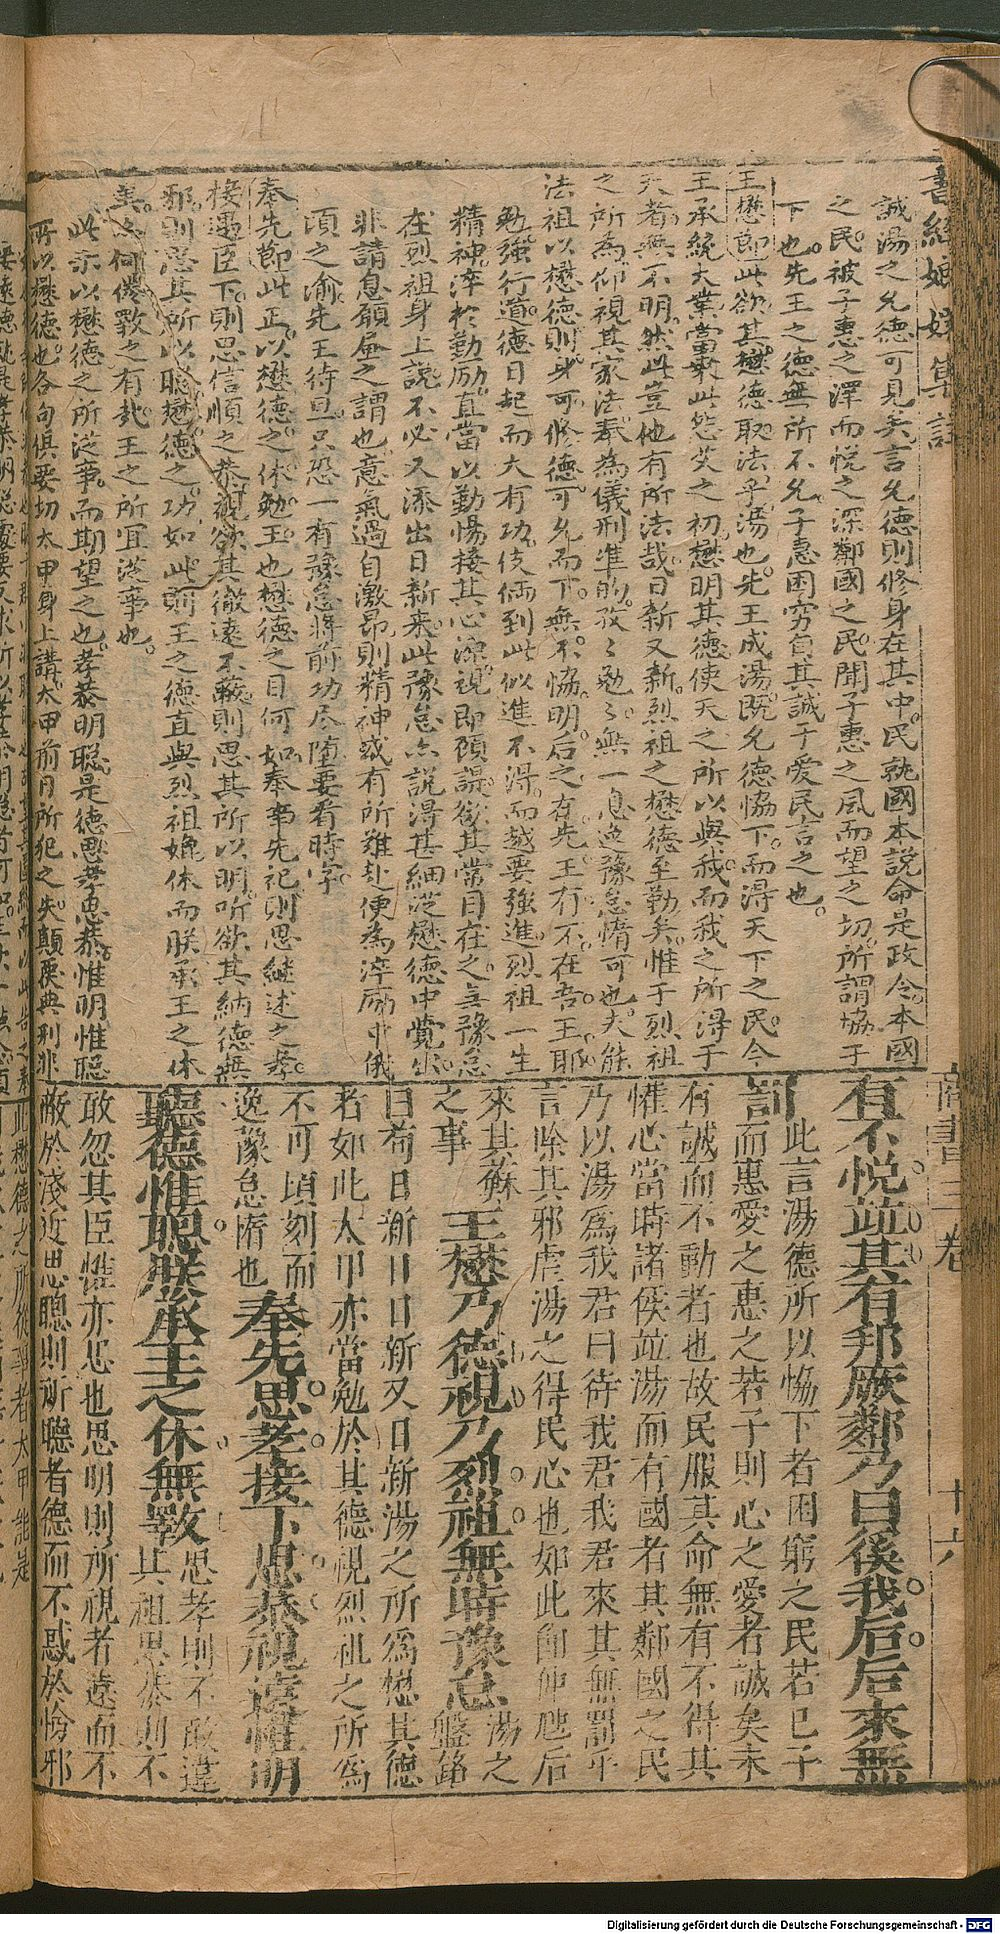 書經嫏嬛集註
商書三卷
十六
誠湯之允德可見矣言允德則修身在其中民就國本說命是政令本國
之民被子惠之澤而悅之深鄰國之民聞子惠之風而望之切所謂協于
下也先王之德無所不允子惠困窮自其誠于愛民言之也
王懋節此欲其懋德取法乎湯也先王成湯既允德協下而得天下之民今
王承統大業當嗣此怨艾之初懋明其德使天之所以與我而我之所得于
天者無不明然此豈他有所法哉日新又新烈祖之懋德至勤矣惟于烈祖
之所為仰視其家法奉為儀刑準的孜々勉々無一息逸豫怠惰可也夫能
法祖以懋德則身可修德可允而下無不協明后之有先王有不在吾王耶
勉強行道德日起而大有功伎倆到此似進不得而越要強進烈祖一生
精神淬於勤勵直當以勤惕接其心源視即頋諟欲其常目在之無豫怠
在烈祖身上說不必又添出日新來此豫怠亦說得甚細從懋德中覺出
非請息顧屈之謂也意氣過自激昂則精神或有所難赴便為淬勵中俄
頃之渝先王待旦只恐一有豫怠將前功尽墮要看時字
奉先節此正以懋德之休勉王也懋德之目何如奉事先祀則思継述之孝
接遇臣下則思信順之恭視欲其徹遠不蔽則思其所以明听欲其納德無
邪則思其所以聰懋德之功如此則王之德直與烈祖媲休而朕承王之休
美亦何僾斁之有哉王之所宜從事也
此示以懋德之所從事而期望之也孝恭明聰是德思孝思恭惟明惟聪
所以懋德也各句俱要切太甲身上講太甲前月所犯之失顛覆典刑非
有不悦竝其有邦厥鄰乃曰徯我后后來無
罰 此言湯德所以恊下者困窮之民若己子
而惠愛之惠之若子則心之愛者誠矣未
有誠而不動者也故民服其命無有不得其
懽心當時諸侯竝湯而有國者其鄰國之民
乃以湯為我君曰待我君我君來其無罰乎
言除其邪虐湯之得民心也如此即仲虺后
來其蘇
之事 王懋乃德視乃烈祖無時豫怠 湯之盤銘
曰苟日新日日新又日新湯之所為懋其德
者如此太甲亦當勉於其德視烈祖之所為
不可頃刻而
逸豫怠惰也 奉先思孝接下思恭視遠惟明
聽德惟聰朕承王之休無斁 思孝則不敢違
其祖思恭則不
敢忽其臣惟亦思也思明則所視者遠而不
蔽於淺近思聰則所聽者德而不惑於憸邪
此懋德之所從事者太甲能是
Digitalisierung gefördert durch die Deutsche Forschungsgemeinschaft - DFG